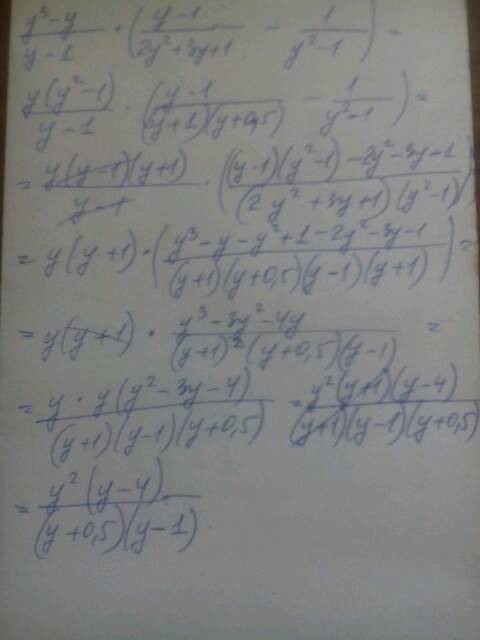 (y³-y)/(y-1) · ((y-1)/(2y²+3y+1) - 1/(y²-1)) =
(y(y²-1))/(y-1) · ((y-1)/((y+1)(y+0,5)) - 1/(y²-1)) =
= (y(y-1)(y+1))/(y-1) · (((y-1)(y²-1)-2y²-3y-1)/((2y²+3y+1)(y²-1)))
= y(y+1) · ((y³-y-y²+1-2y²-3y-1)/((y+1)(y+0,5)(y-1)(y+1))) =
= y(y+1) · (y³-3y²-4y)/((y+1)²(y+0,5)(y-1)) =
= (y·y(y²-3y-4))/((y+1)(y-1)(y+0,5)) = (y²(y+1)(y-4))/((y+1)(y-1)(y+0,5))
= (y²(y-4))/((y+0,5)(y-1)).